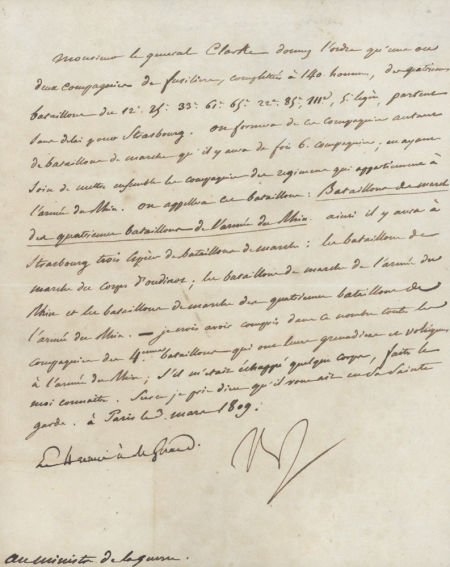 Monsieur le général Clarke donnez l'ordre qu'une ou
deux compagnies de fusiliers, complettées à 140 hommes, des quatrièmes
bataillons des 12e 25e 33e 61e 65e 22e 85e 111e, 5e légère, partent
sans délai pour Strasbourg. On formera de ces compagnies autant
de bataillons de marche qu'il y aura de fois 6 compagnies, en ayant
soin de mettre ensemble les compagnies des régimens qui appartiennent à
l'armée du Rhin. On appellera ces bataillons: Bataillons de marche
des quatriemes bataillons de l'armée du Rhin. ainsi il y aura à
Strasbourg trois espèces de bataillons de marche: les bataillons de
marche du corps d'oudinot; les bataillons de marche de l'armée du
Rhin et les bataillons de marche des quatriemes bataillons de
l'armée du Rhin. — je crois avoir compris dans ce nombre toutes les
compagnies des 4emes bataillons qui ont leurs grenadiers et voltigeurs
à l'armée du Rhin; S'il m'était échappé quelque corps, faites le
moi connaître. Sur ce je prie dieu qu'il vous ait en sa Sainte
garde. à Paris le 3 mars 1809.
au ministre de la guerre.